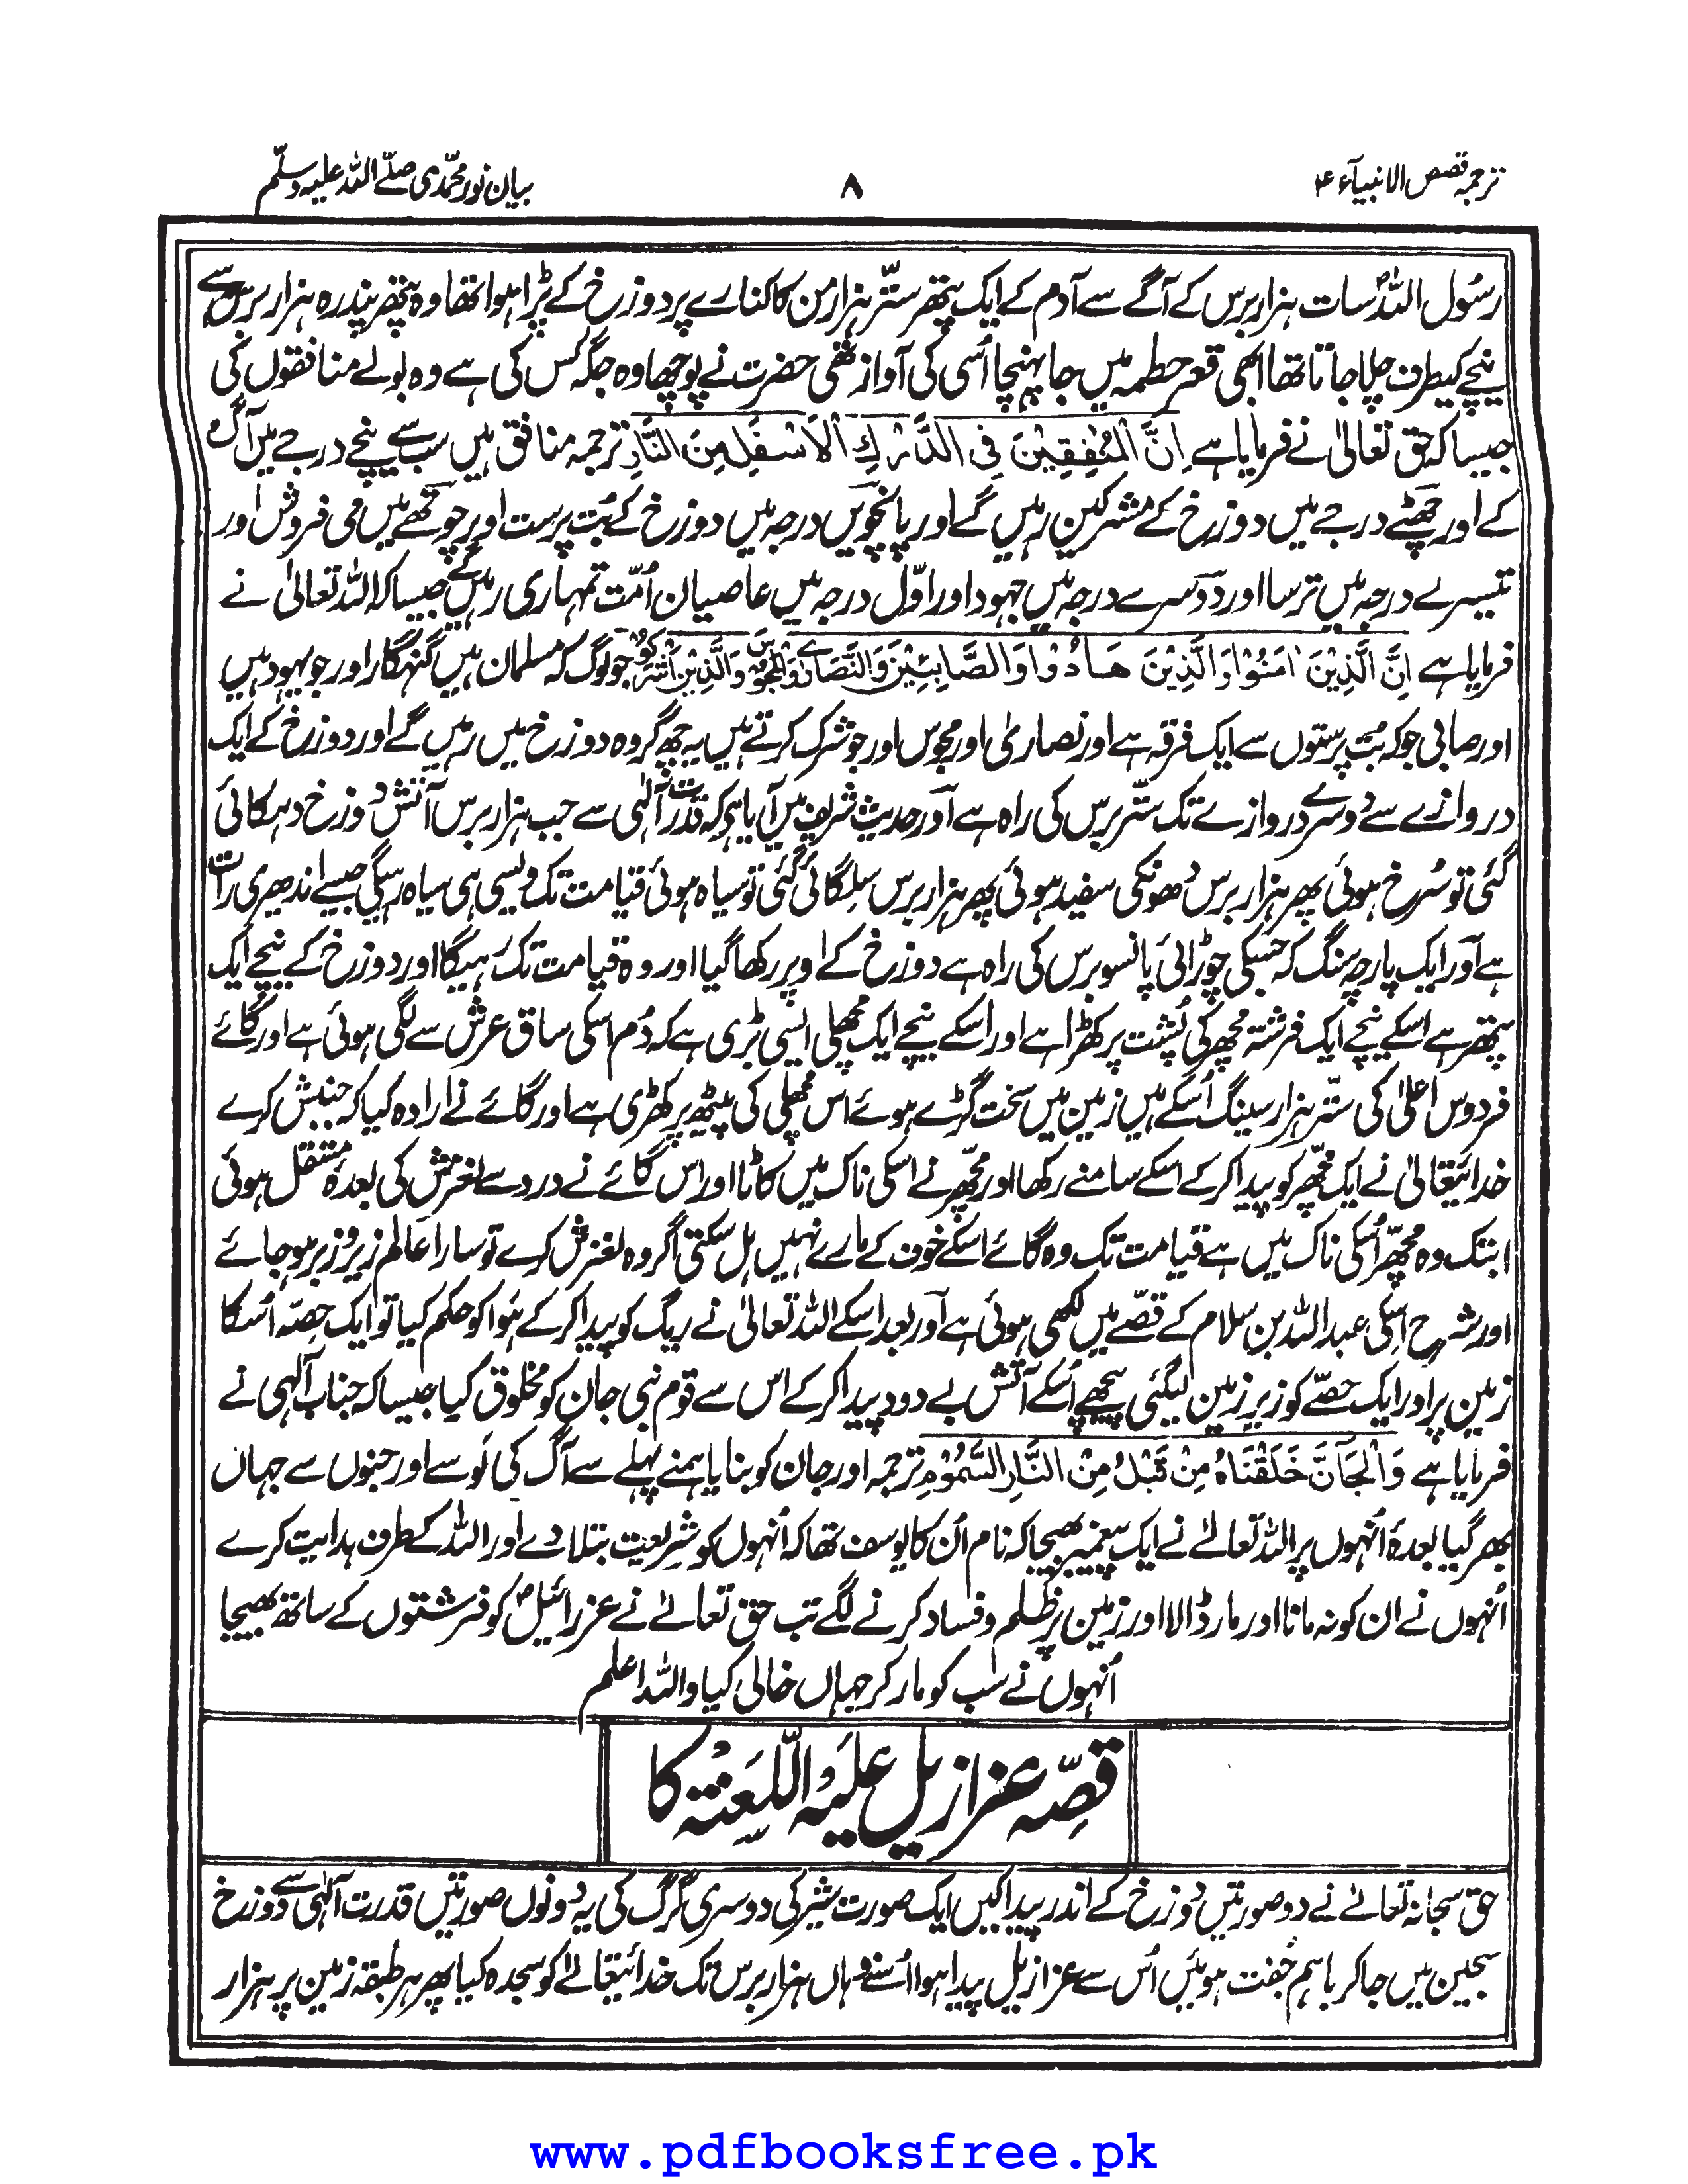 ترجمہ قصص الانبیآء ۴
۸
بیان نور محمّدی صلّے اللہ علیہ وسلّم
رسُول اللہؐ سات ہزار برس کے آگے سے آدم کے ایک پتھر ستّر ہزار من کا کنارے پر دوزخ کے پڑا ہوا تھا وہ پتھر پندرہ ہزار برس سے
نیچے کیطرف چلا جاتا تھا ابھی قعر حطمہ میں جا پہنچا اُسی کی آواز تھی حضرت نے پوچھا وہ جگہ کس کی ہے وہ بولے منافقوں کی
جیسا کہ حق تعالیٰ نے فرمایا ہے اِنَّ الْمُنٰفِقِیْنَ فِی الدَّرْكِ الْاَسْفَلِ مِنَ النَّارِ ترجمہ منافق ہیں سب سے نیچے درجے میں آگ
کے اور چھٹے درجے میں دوزخ کے مشرکین رہیں گے اور پانچویں درجہ میں دوزخ کے بُت پرست اور چوتھے میں می فروش اور
تیسرے درجہ میں ترسا اور دوسرے درجہ میں جہود اور اوّل درجہ میں عاصیان اُمّت تمہاری رہیں گے جیسا کہ اللہ تعالیٰ نے
فرمایا ہے اِنَّ الَّذِیْنَ اٰمَنُوْا وَالَّذِیْنَ ھَادُوْا وَالصَّابِئِیْنَ وَالنَّصَارٰے وَالْمَجُوْسَ وَالَّذِیْنَ اَشْرَكُوْ جو لوگ کہ مسلمان ہیں گنہگار اور جو یہود ہیں
اور صابی جو کہ بُت پرستوں سے ایک فرقہ ہے اور نصاریٰ اور مجوس اور جو شرک کرتے ہیں یہ چھ گروہ دوزخ میں رہیں گے اور دوزخ کے ایک
دروازے سے دوسرے دروازے تک ستّر برس کی راہ ہے اور حدیث شریف میں آیا ہے کہ قدرت آلٰہی سے جب ہزار برس آتش دوزخ دہکائی
گئی تو سُرخ ہوئی پھر ہزار برس دھونکی سفید ہوئی پھر ہزار برس سلگائی گئی تو سیاہ ہوئی قیامت تک ویسی ہی سیاہ رہیگی جیسے اندھیری رات
ہے اور ایک پارچہ سنگ کہ جسکی چوڑائی پانسو برس کی راہ ہے دوزخ کے اوپر رکھا گیا اور وہ قیامت تک رہیگا اور دوزخ کے نیچے ایک
پتھر ہے اسکے نیچے ایک فرشتہ مچھر کی پُشت پر کھڑا ہے اور اسکے نیچے ایک مچھلی ایسی بڑی ہے کہ دُم اسکی ساق عرش سے لگی ہوئی ہے اور گائے
فردوس اعلیٰ کی ستّر ہزار سینگ اُسکے ہیں زمین میں سخت گڑے ہوئے اس مچھلی کی پیٹھ پر کھڑی ہے اور گائے نے ارادہ کیا کہ جنبش کرے
خدائیتعالیٰ نے ایک مچھر کو پیدا کر کے اسکے سامنے رکھا اور مچھر نے اسکی ناک میں کاٹا اور اس گائے نے درد سے لغزش کی بعدہٗ مستقل ہوئی
ابتک وہ مچھر اُسکی ناک میں ہے قیامت تک وہ گائے اسکے خوف کے مارے نہیں ہل سکتی اگر وہ لغزش کرے تو سارا عالم زیر و زبر ہو جائے
اور شرح اسکی عبد اللہ بن سلام کے قصّے میں لکھی ہوئی ہے اور بعد اسکے اللہ تعالیٰ نے ریگ کو پیدا کر کے ہَوا کو حکم کیا تو ایک حِصّہ اُسکا
زمین پر اور ایک حصّے کو زیر زمین لیگئی پیچھے اُسکے آتش بے دود پیدا کر کے اس سے قوم نبی جان کو مخلوق کیا جیسا کہ جناب آلٰہی نے
فرمایا ہے وَالْجَآنَّ خَلَقْنَاہُ مِنْ قَبْلُ مِنْ النَّارِ السَّمُوْمِ ترجمہ اور جان کو بنایا ہمنے پہلے سے آگ کی لَو سے اور جنوں سے جہاں
بھر گیا بعدہٗ اُنہوں پر اللہ تعالےٰ نے ایک پیغمبر بھیجا کہ نام اُن کا یوسف تھا کہ اُنہوں کو شریعت بتلا دے اور اللہ کے طرف ہدایت کرے
اُنہوں نے ان کو نہ مانا اور مار ڈالا اور زمین پر ظلم و فساد کرنے لگے تب حق تعالےٰ نے عزرائیلؑ کو فرشتوں کے ساتھ بھیجا
اُنہوں نے سب کو مار کر جہاں خالی کیا واللہ اعلم
قصّہ عزازیل علیہ اللّعنۃ کا
حق سبحانہ تعالےٰ نے دو صورتیں دوزخ کے اندر پیدا کیں ایک صورت شیر کی دوسری گرگ کی یہ دونوں صورتیں قدرت آلٰہی سے دوزخ
سجین میں جا کر باہم جفت ہوئیں اُس سے عزازیل پیدا ہوا اُسنے وہاں ہزار برس تک خدائیتعالےٰ کو سجدہ کیا پھر ہر طبقہ زمین پر ہزار
www.pdfbooksfree.pk